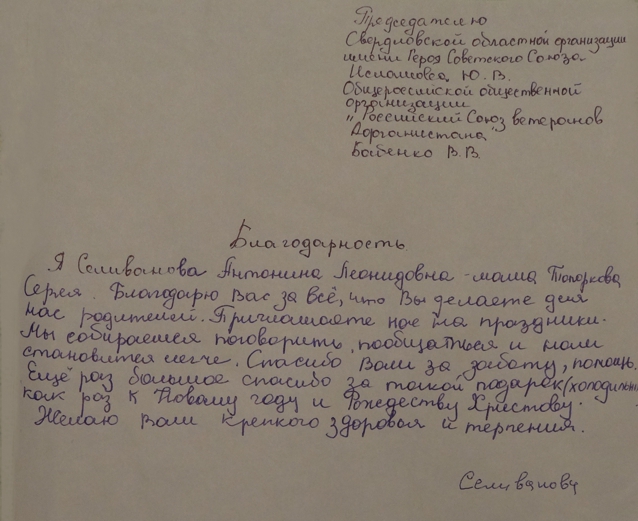 Председателю
Свердловской областной организации
имени Героя Советского Союза
Исламова Ю.В.
Общероссийской общественной
организации
"Российский Союз ветеранов
Афганистана"
Бабенко В.В.
Благодарность
Я Селиванова Антонина Леонидовна - мама Топоркова
Сергея. Благодарю Вас за всё, что Вы делаете для
нас родителей. Приглашаете нас на праздники.
Мы собираемся поговорить, пообщаться и нам
становится легче. Спасибо Вам за заботу, помощь.
Ещё раз большое спасибо за такой подарок (холодильник
как раз к Новому году и Рождеству Христову.
Желаю Вам крепкого здоровья и терпения.
Селиванова